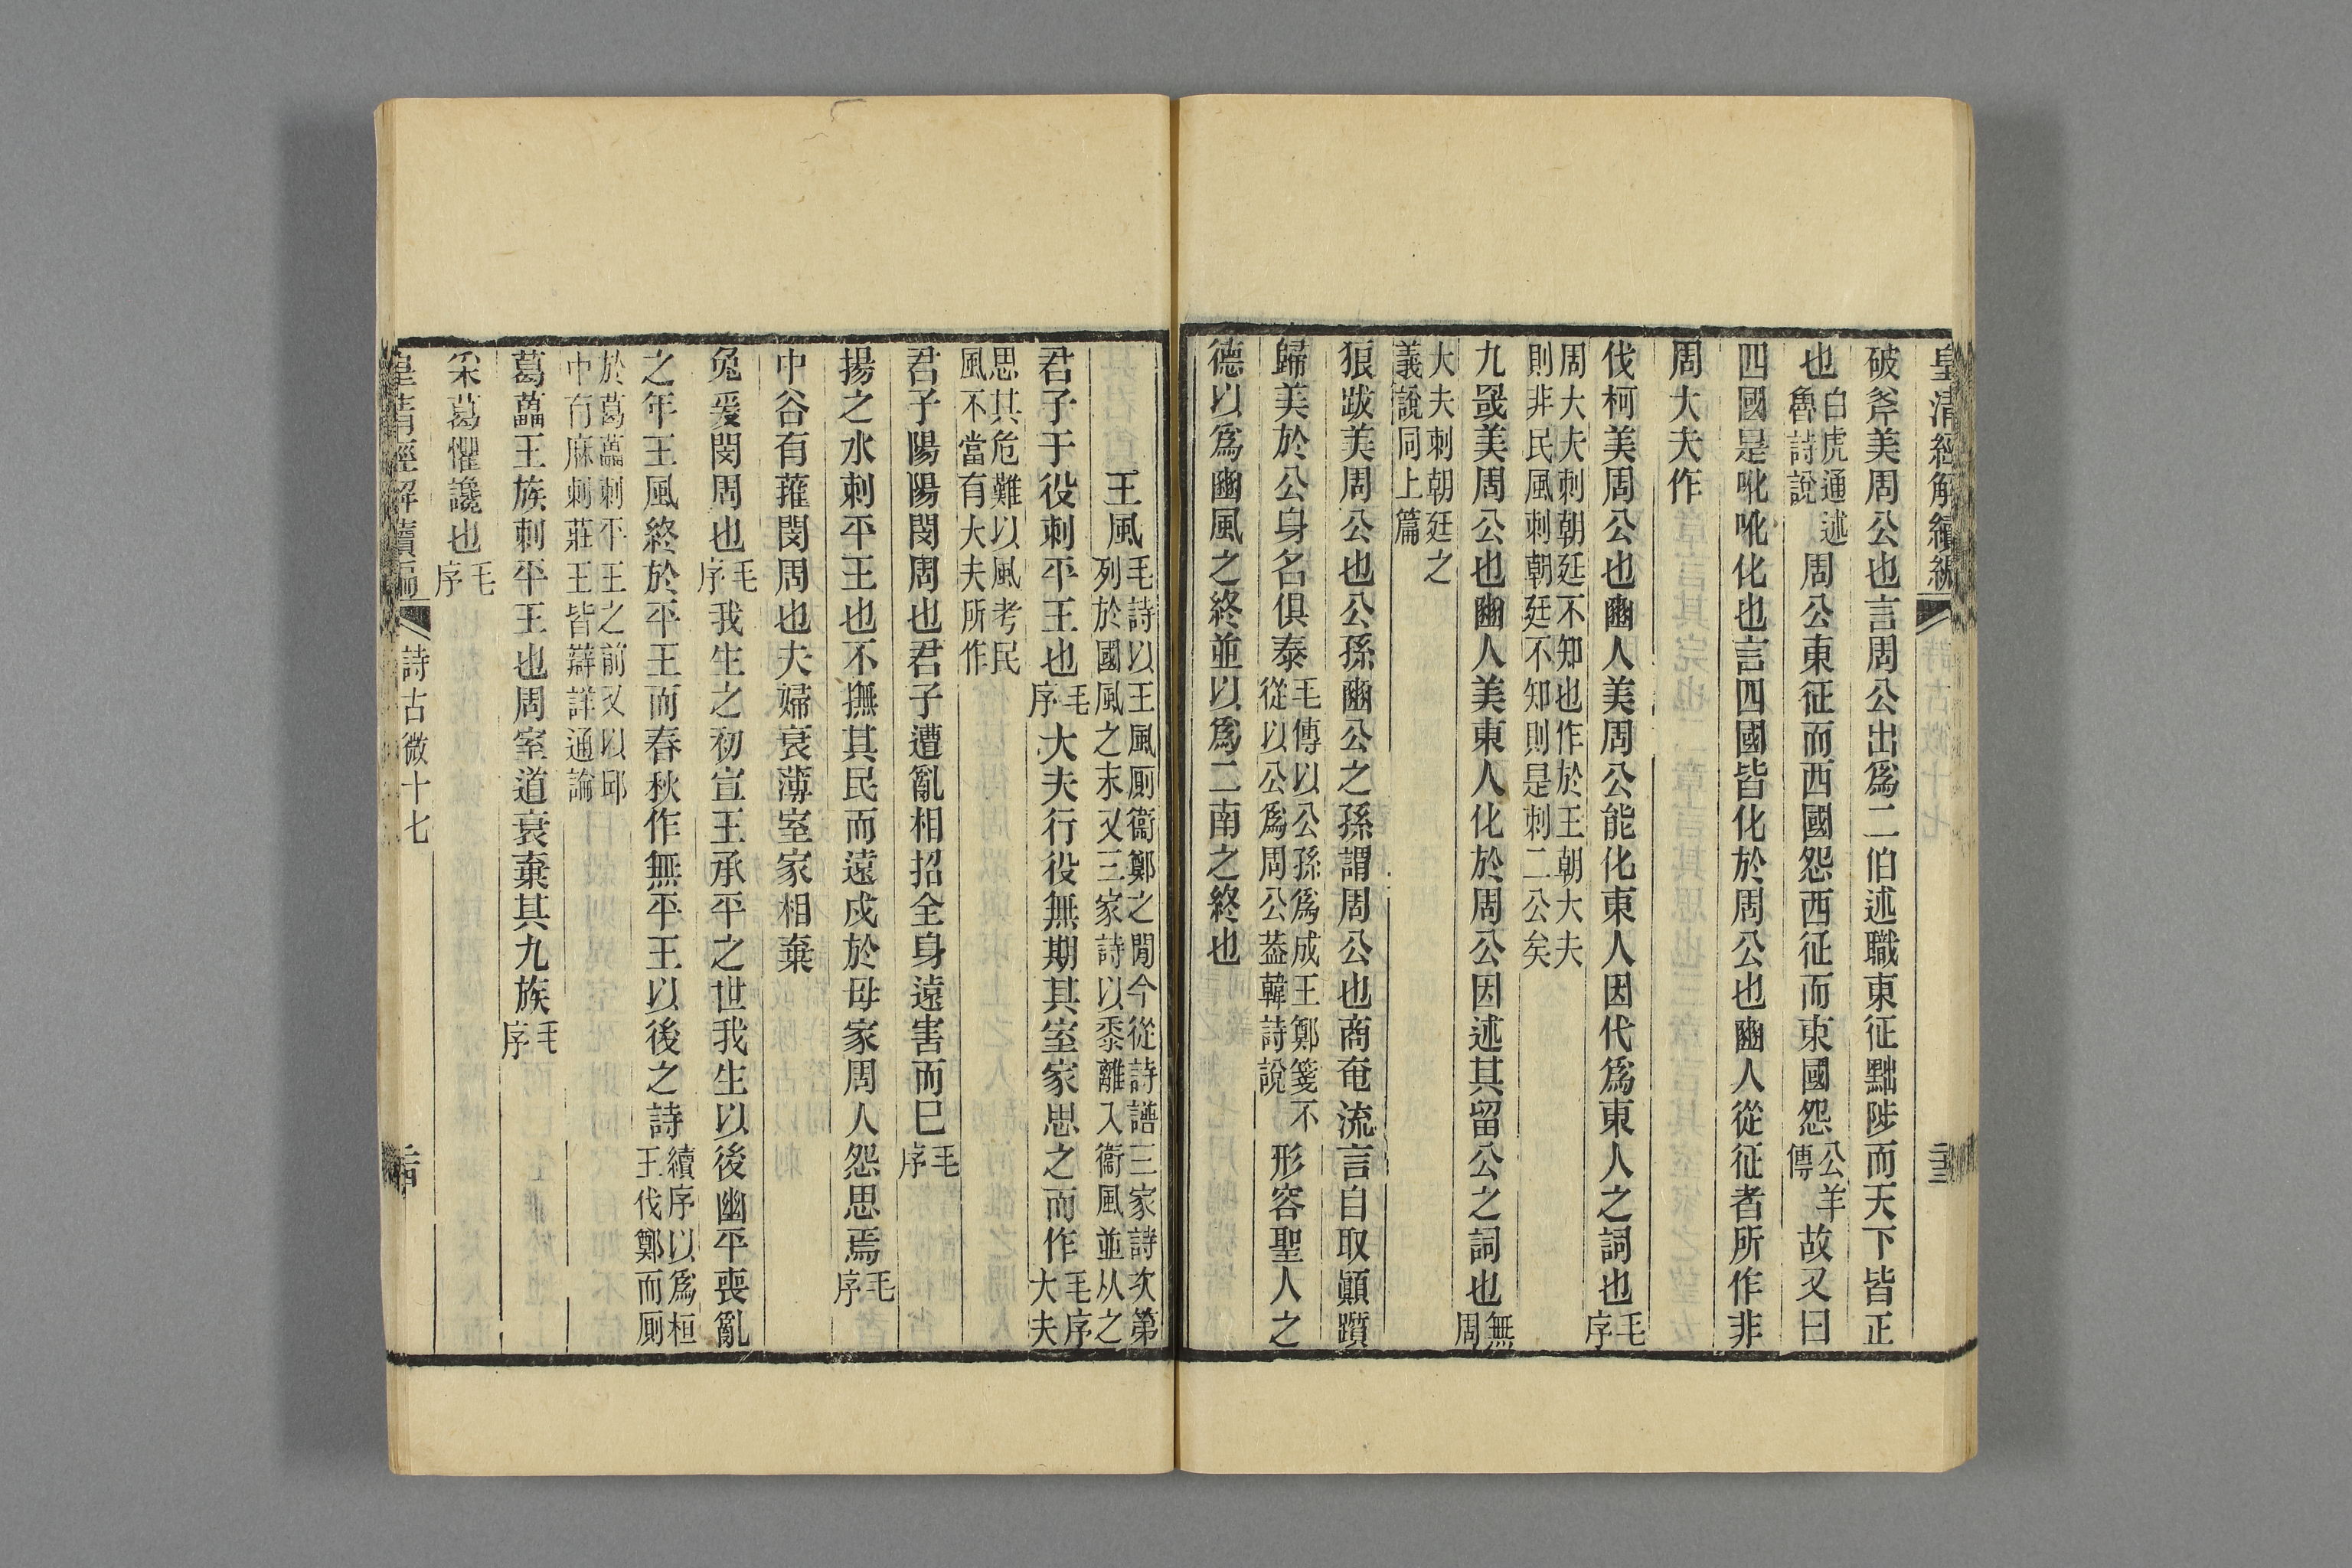 皇清經解續編 詩古微十七 二十三
破斧美周公也言周公出爲二伯述職東征黜陟而天下皆正
也白虎通述魯詩說周公東征而西國怨西征而東國怨公羊傳故又曰
四國是吪吪化也言四國皆化於周公也豳人從征者所作非
周大夫作
伐柯美周公也豳人美周公能化東人因代爲東人之詞也毛序
周大夫刺朝廷不知也作於王朝大夫則非民風刺朝廷不知則是刺二公矣
九罭美周公也豳人美東人化於周公因述其留公之詞也無周
大夫刺朝廷之義說同上篇
狼跋美周公也公孫豳公之孫謂周公也商奄流言自取顚躓
歸美於公身名俱泰毛傳以公孫爲成王鄭箋不從以公爲周公葢韓詩說形容聖人之
德以爲豳風之終並以爲二南之終也
王風毛詩以王風厠衞鄭之閒今從詩譜三家詩次第列於國風之末又三家詩以黍離入衞風並从之
君子于役刺平王也毛序大夫行役無期其室家思之而作毛序大夫
思其危難以風考民風不當有大夫所作
君子陽陽閔周也君子遭亂相招全身遠害而已毛序
揚之水刺平王也不撫其民而遠戍於母家周人怨思焉毛序
中谷有蓷閔周也夫婦衰薄室家相棄
兔爰閔周也毛序我生之初宣王承平之世我生以後幽平喪亂
之年王風終於平王而春秋作無平王以後之詩續序以爲桓王伐鄭而厠
於葛藟刺平王之前又以邱中有麻刺莊王皆辯詳通論
葛藟王族刺平王也周室道衰棄其九族毛序
采葛懼讒也毛序
皇清經解續編 詩古微十七 二十四